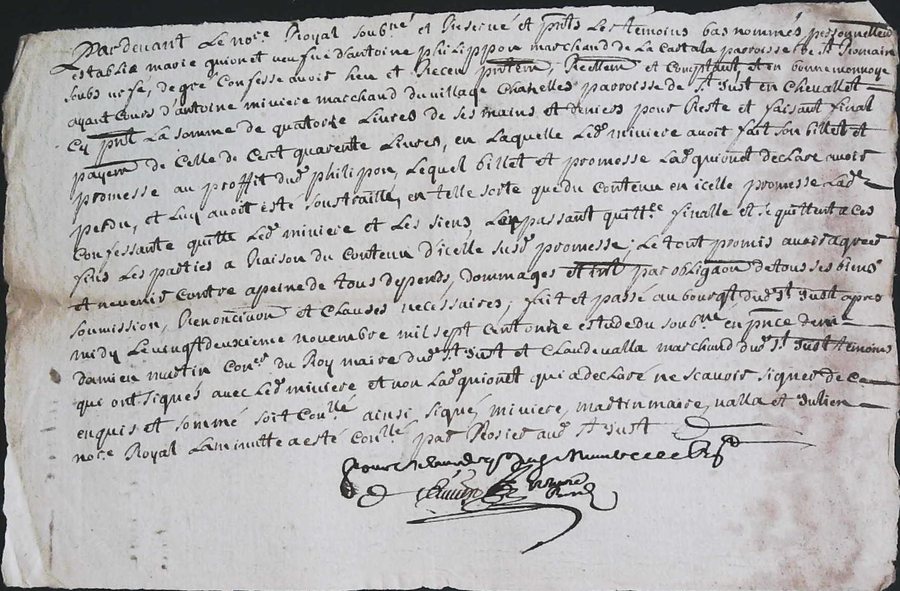 Pardevant Le no.re Royal soub.né et Reservé et pnts Les temoins bas nommés personnellem
establie marie quionet veufve d'antoine philippon marchand de La Castala parroisse de St Romain
soubs urfé, de gré Confesse avoir heu et Receu pntem, Reellem et Comptant, et en bonne monnoye
ayant Cours d'antoine miviere marchand du village Chazelles parroisse de St Just en Chevallet
Cy pnt La somme de quatorze Livres de ses mains et deniers pour Reste et faisant final
payem de Celle de Cent quarente Livres, en Laquelle Led miviere avoit fait son billet et
promesse au proffit dud philippon, Lequel billet et promesse Lad quionet declare avoir
perdu, et Luy avoit esté soustraille, en telle sorte que du Contenu en icelle promesse Lad
Confessante quitte Led miviere et Les siens, Le passant quitt.ce finalle et se quittent a Ces
fins Les parties a Raison du Contenu d'icelle susd promesse; Le tout promis avoir agreé
et ne venir Contre a peine de tous depends, dommages et int par obligaon de tous ses biens
soumission, Renonciaon et Clauses necessaires; fait et passé au bourgt dud St Just apres
midy Le vingt deuxieme novembre mil sept Cent onze estude du soub.né, en pnce de m.e
damien martin Con.er du Roy maire dud St Just et Claude valla marchand dud St Just temoins
qui ont signés avec Led miviere et non Lad quionet qui a declaré ne scavoir signer de Ce
enquis et sommé soit Con.llé ainsi signé, miviere, martin maire, valla et Julien
no.re Royal La minutte a esté Con.llé par Rosier aud St Just